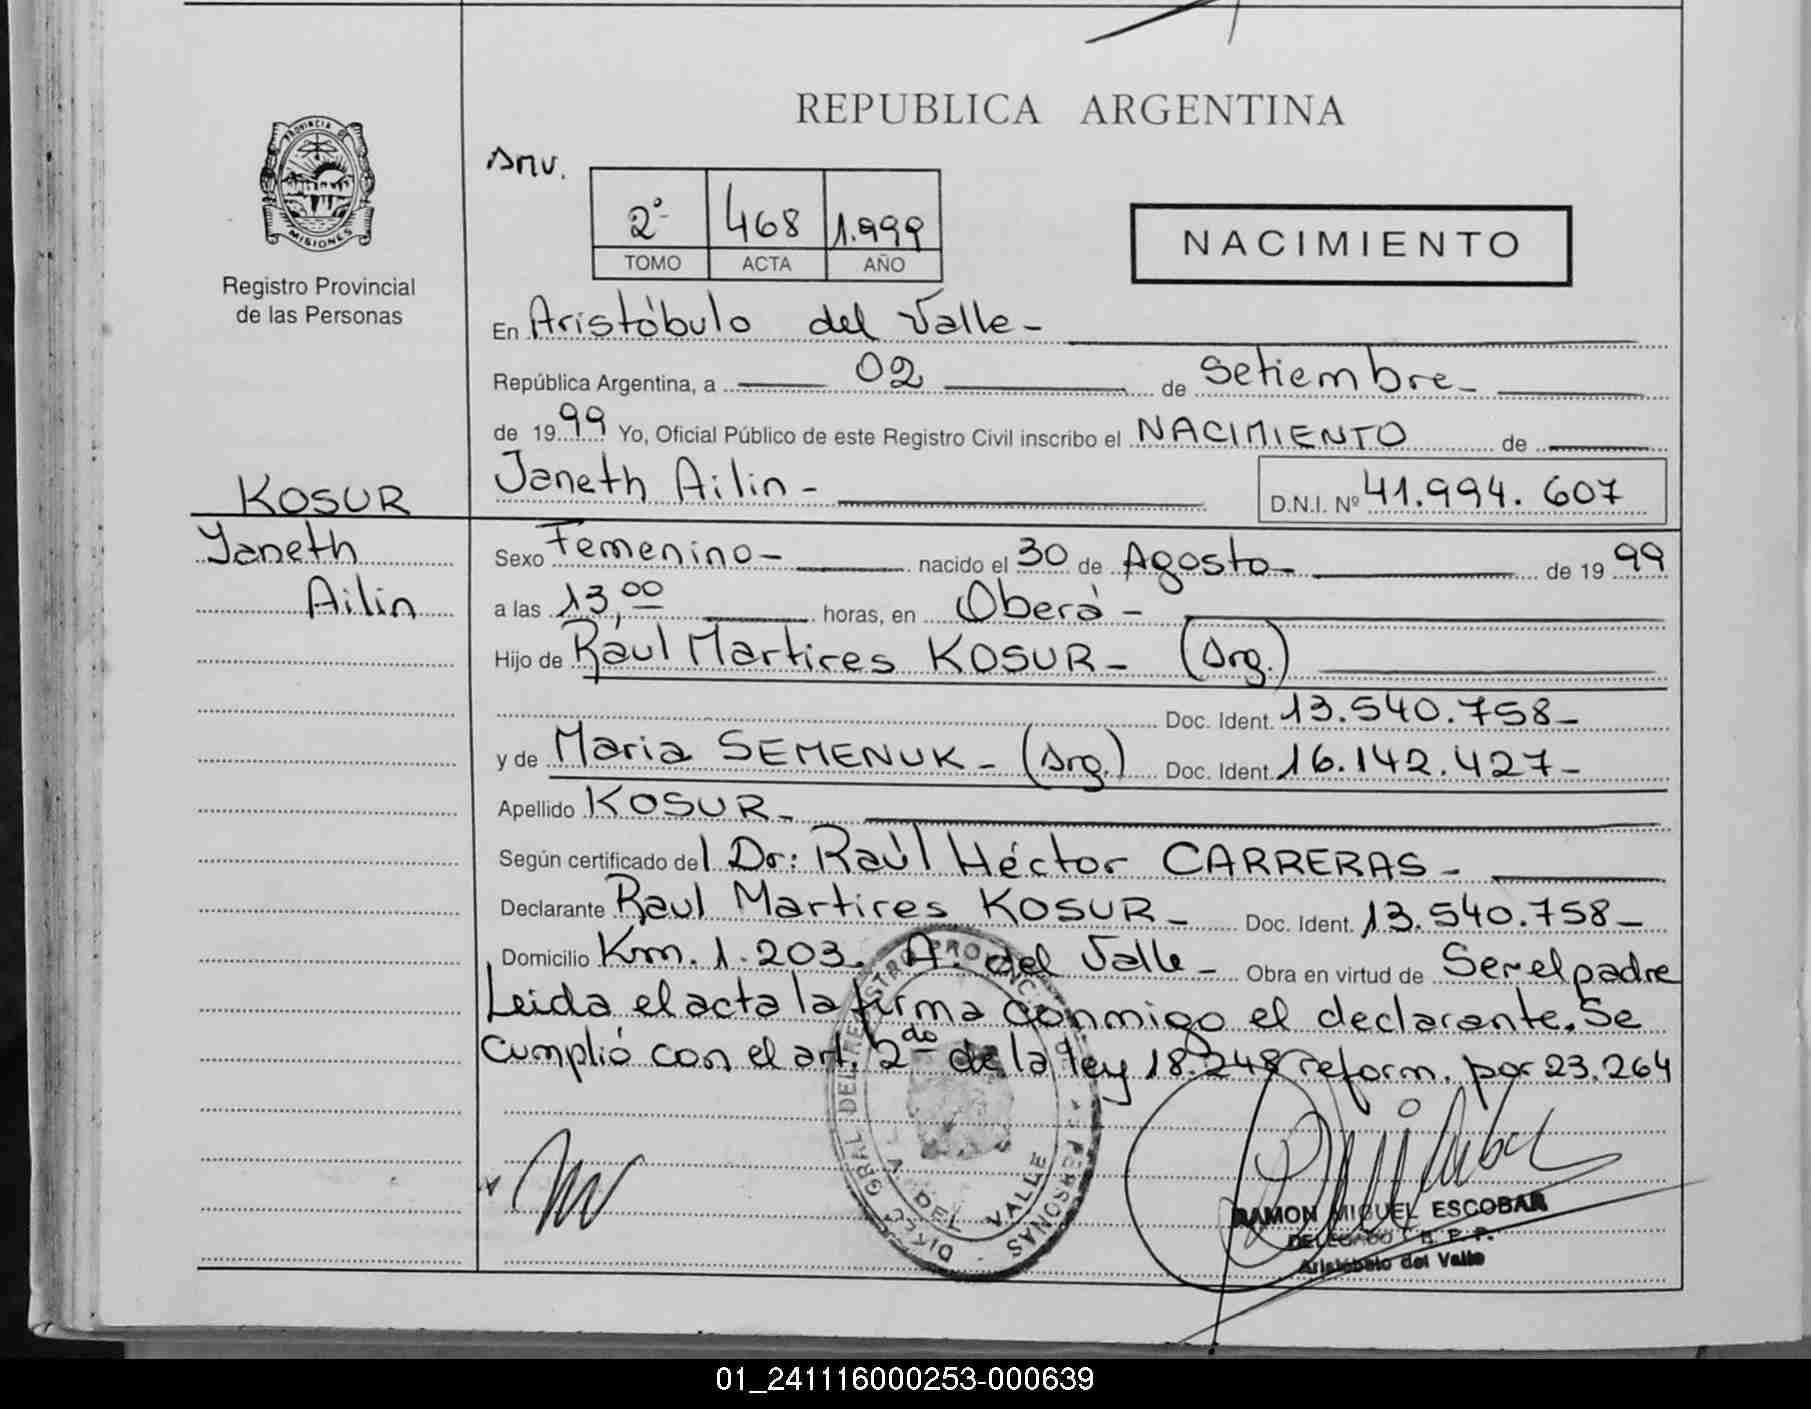 REPUBLICA ARGENTINA
PROVINCIA DE
MISIONES
Registro Provincial
de las Personas
2º 468 1.999
TOMO ACTA AÑO
NACIMIENTO
En Aristóbulo del Valle -
República Argentina, a 02 de Setiembre -
de 1999 Yo, Oficial Público de este Registro Civil inscribo el NACIMIENTO de
KOSUR
Janeth Ailin -
D.N.I. Nº 41.994.607
Janeth
Ailin
Sexo Femenino - nacido el 30 de Agosto - de 19 99
a las 13,00 horas, en Oberá -
Hijo de Raúl Martires KOSUR - (Arg.)
Doc. Ident. 13.540.758 -
y de Maria SEMENUK - (Arg.) Doc. Ident. 16.142.427 -
Apellido KOSUR -
Según certificado del Dr: Raúl Héctor CARRERAS -
Declarante Raul Martires KOSUR - Doc. Ident. 13.540.758 -
Domicilio Km. 1.203. A. del Valle - Obra en virtud de Ser el padre
Leida el acta la firma conmigo el declarante. Se
cumplió con el art. 2do de la ley 18.248 reform. por 23.264
DIREC. GRAL DEL REGISTRO PROVINC. DE LAS PERSONAS
A. DEL VALLE
RAMON MIGUEL ESCOBAR
DELEGADO R. P. P.
Aristóbulo del Valle
01_241116000253-000639